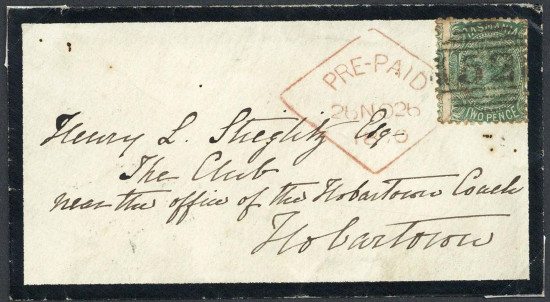 TASMANIA
52
TWO PENCE
PRE-PAID
26 NO 26
Henry L. Stieglitz Esq
The Club
near the office of the Hobartown Coach
Hobartown